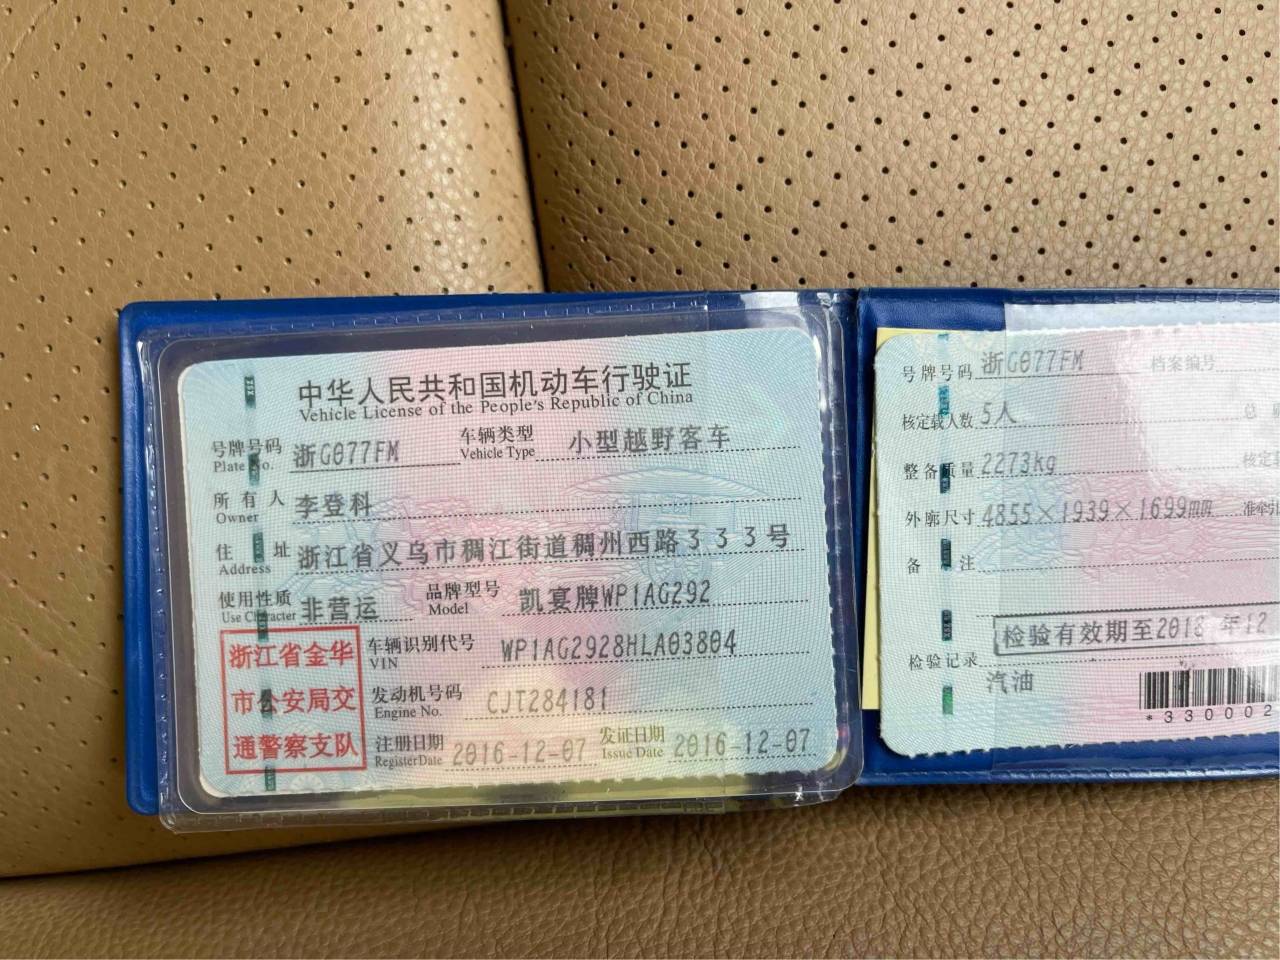 中华人民共和国机动车行驶证
Vehicle License of the People's Republic of China
号牌号码 浙G077FM 车辆类型 小型越野客车
Plate No. Vehicle Type
所有人 李登科
Owner
住址 浙江省义乌市稠江街道稠州西路333号
Address
使用性质 非营运 品牌型号 凯宴牌WP1AG292
Use Character Model
浙江省金华
市公安局交
通警察支队
车辆识别代号 WP1AG2928HLA03804
VIN
发动机号码 CJT284181
Engine No.
注册日期 2016-12-07 发证日期 2016-12-07
Register Date Issue Date
号牌号码 浙G077FM 档案编号
核定载人数 5人
整备质量 2273kg 核定
外廓尺寸 4855×1939×1699mm 准牵引
备注
检验有效期至2018年12
检验记录
汽油
*330002